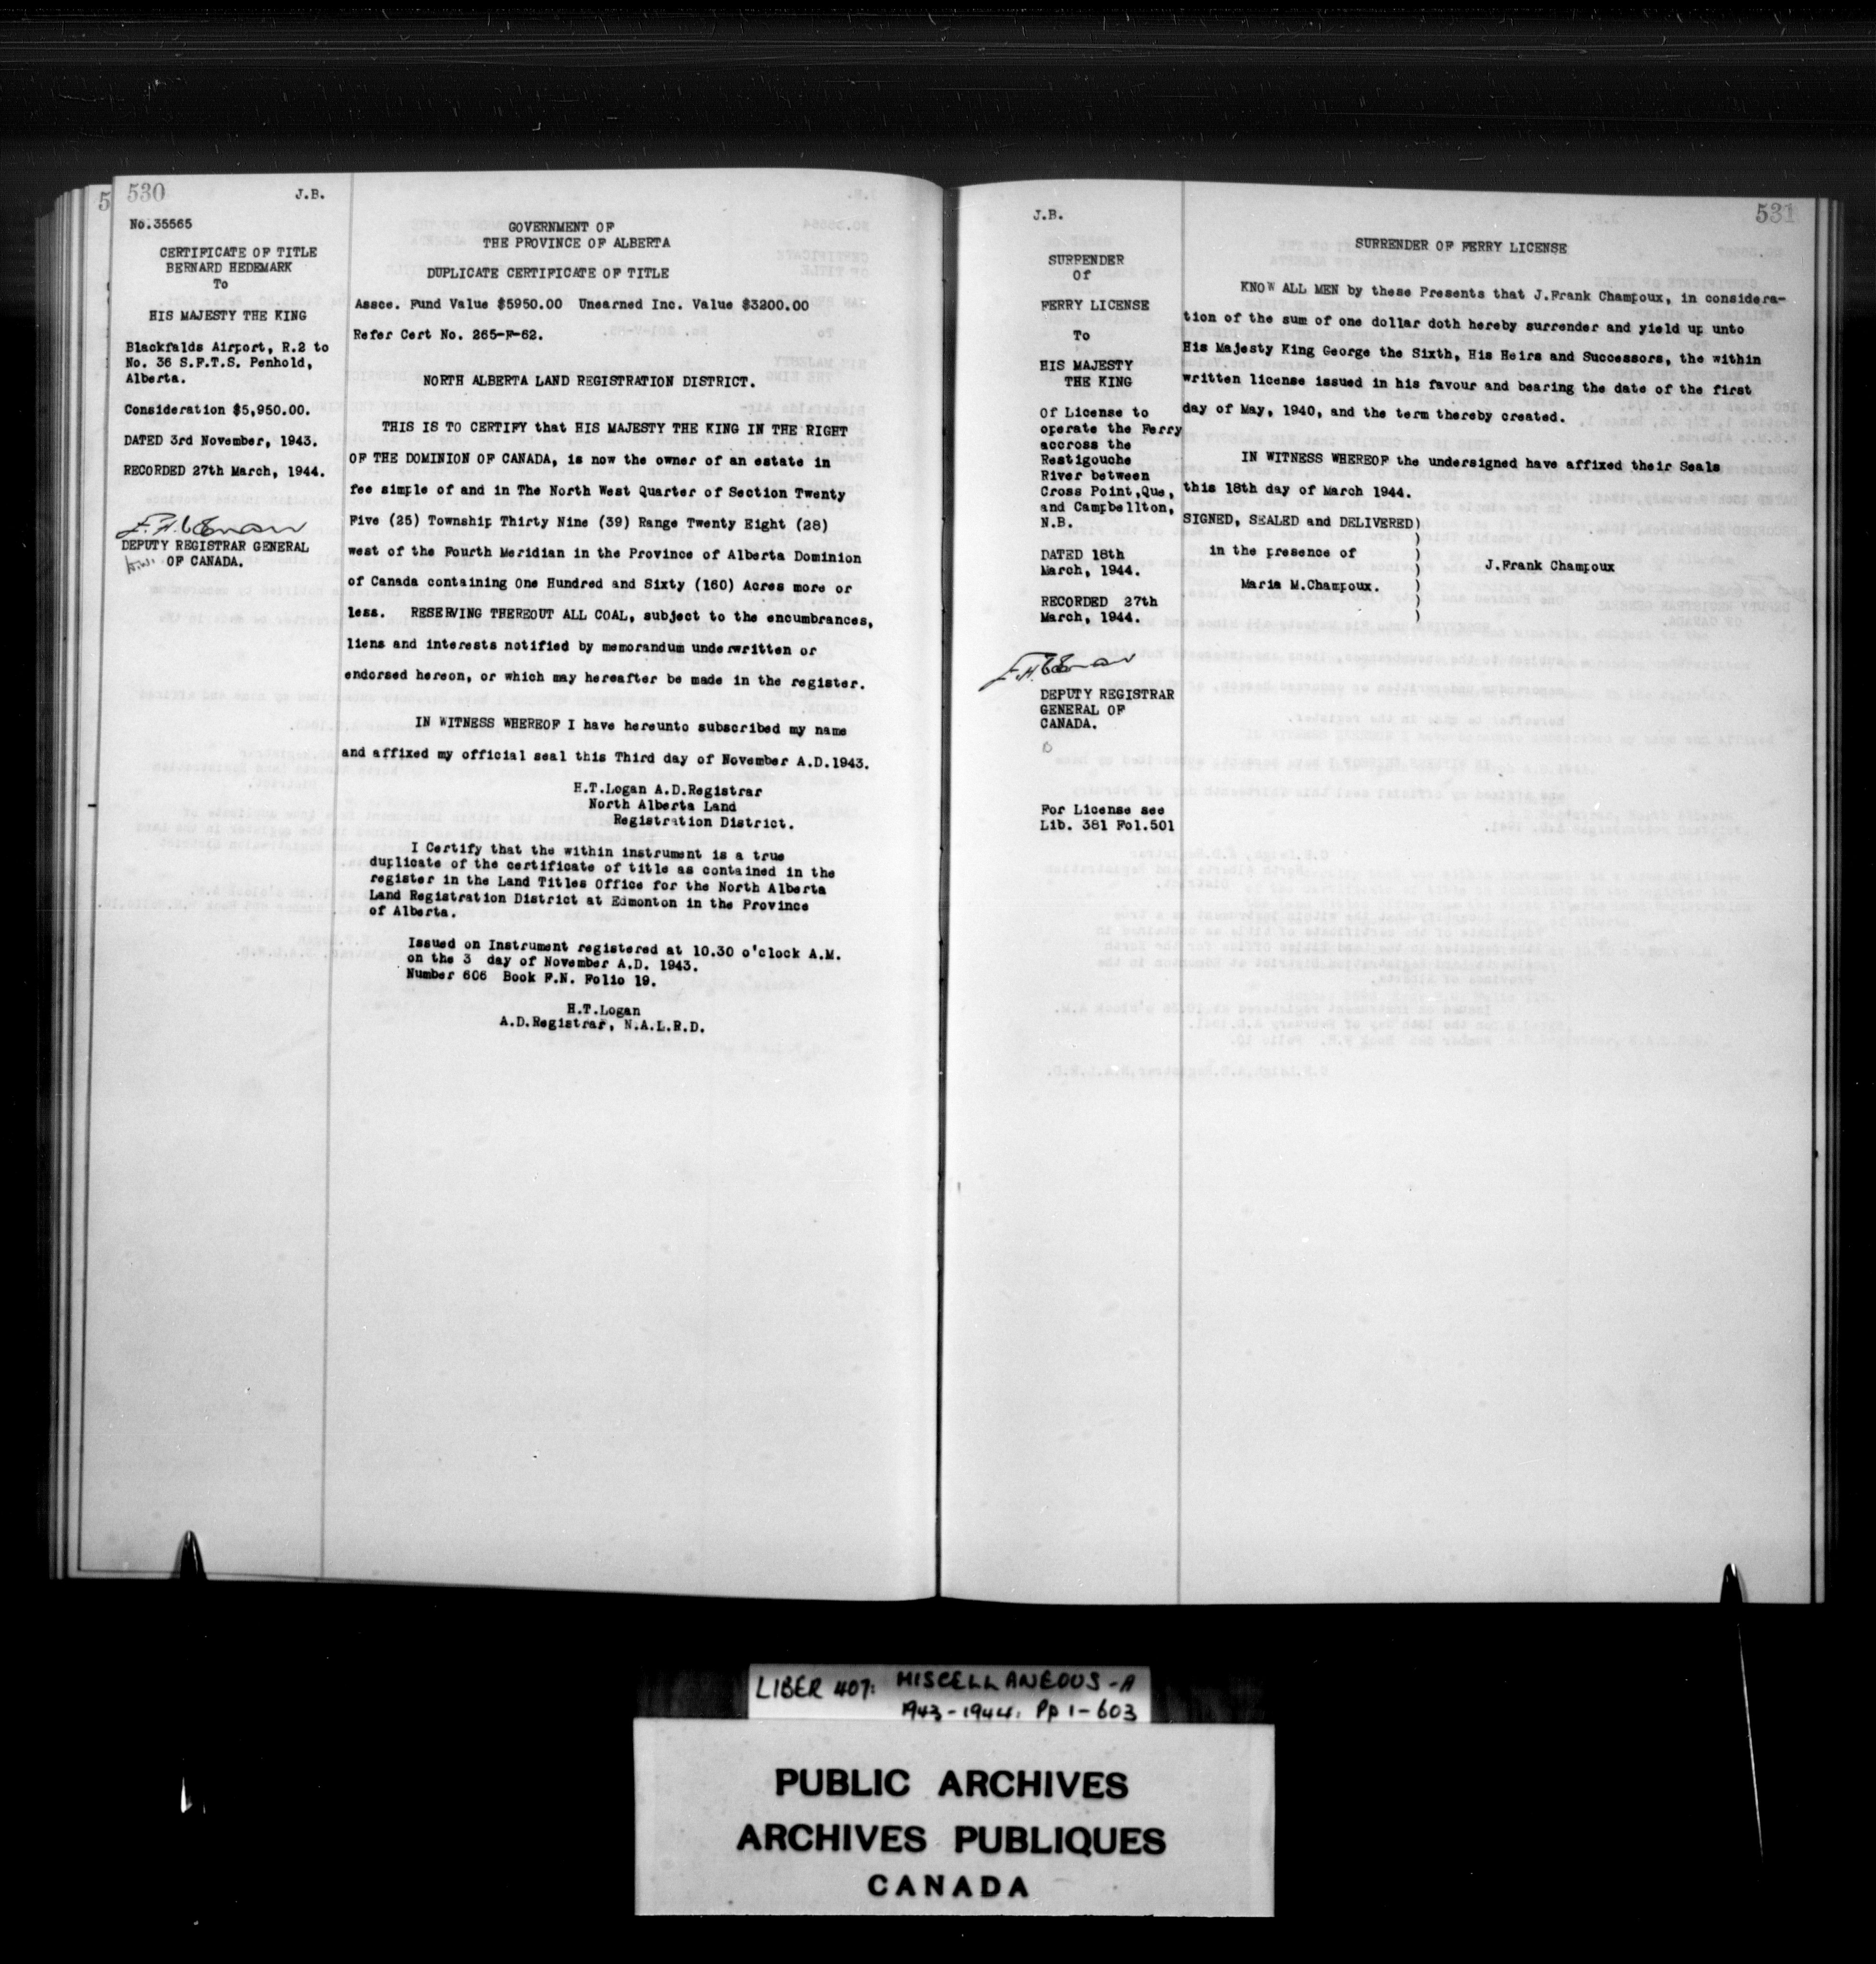 530
J.B.
No.35565
CERTIFICATE OF TITLE
BERNARD HEDEMARK
To
HIS MAJESTY THE KING
Blackfalds Airport, R.2 to
No. 36 S.F.T.S. Penhold,
Alberta.
Consideration $5,950.00.
DATED 3rd November, 1943.
RECORDED 27th March, 1944.
DEPUTY REGISTRAR GENERAL
OF CANADA.
GOVERNMENT OF
THE PROVINCE OF ALBERTA
DUPLICATE CERTIFICATE OF TITLE
Assce. Fund Value $5950.00 Unearned Inc. Value $3200.00
Refer Cert No. 265-F-62.
NORTH ALBERTA LAND REGISTRATION DISTRICT.
THIS IS TO CERTIFY that HIS MAJESTY THE KING IN THE RIGHT
OF THE DOMINION OF CANADA, is now the owner of an estate in
fee simple of and in The North West Quarter of Section Twenty
Five (25) Township Thirty Nine (39) Range Twenty Eight (28)
west of the Fourth Meridian in the Province of Alberta Dominion
of Canada containing One Hundred and Sixty (160) Acres more or
less. RESERVING THEREOUT ALL COAL, subject to the encumbrances,
liens and interests notified by memorandum underwritten or
endorsed hereon, or which may hereafter be made in the register.
IN WITNESS WHEREOF I have hereunto subscribed my name
and affixed my official seal this Third day of November A.D.1943.
H.T.Logan A.D.Registrar
North Alberta Land
Registration District.
I Certify that the within instrument is a true
duplicate of the certificate of title as contained in the
register in the Land Titles Office for the North Alberta
Land Registration District at Edmonton in the Province
of Alberta.
Issued on Instrument registered at 10.30 o'clock A.M.
on the 3 day of November A.D. 1943.
Number 606 Book F.N. Folio 19.
H.T.Logan
A.D.Registrar, N.A.L.R.D.
531
J.B.
SURRENDER
Of
FERRY LICENSE
To
HIS MAJESTY
THE KING
Of License to
operate the Ferry
accross the
Restigouche
River between
Cross Point,Que,
and Campbellton,
N.B.
DATED 18th
March, 1944.
RECORDED 27th
March, 1944.
DEPUTY REGISTRAR
GENERAL OF
CANADA.
For License see
Lib. 381 Fol.501
SURRENDER OF FERRY LICENSE
KNOW ALL MEN by these Presents that J.Frank Champoux, in considera-
tion of the sum of one dollar doth hereby surrender and yield up unto
His Majesty King George the Sixth, His Heirs and Successors, the within
written license issued in his favour and bearing the date of the first
day of May, 1940, and the term thereby created.
IN WITNESS WHEREOF the undersigned have affixed their Seals
this 18th day of March 1944.
SIGNED, SEALED and DELIVERED)
)
in the presence of )
) J.Frank Champoux
Maria M.Champoux. )
)
)
LIBER 407: MISCELLANEOUS - A
1943-1944. Pp 1-603
PUBLIC ARCHIVES
ARCHIVES PUBLIQUES
CANADA